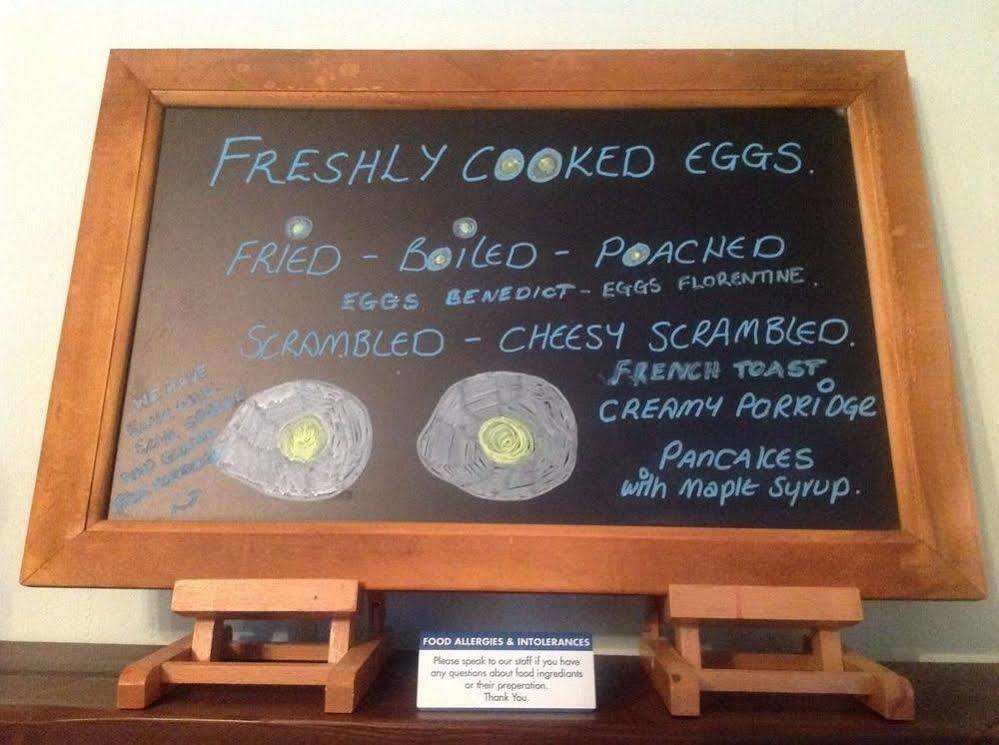 FRESHLY COOKED EGGS.
FRIED - BOILED - POACHED
EGGS BENEDICT - EGGS FLORENTINE.
SCRAMBLED - CHEESY SCRAMBLED.
FRENCH TOAST
CREAMY PORRIDGE
PANCAKES
with maple Syrup.
WE HAVE
AND
FOOD ALLERGIES & INTOLERANCES
Please speak to our staff if you have
any questions about food ingredients
or their preperation.
Thank You.